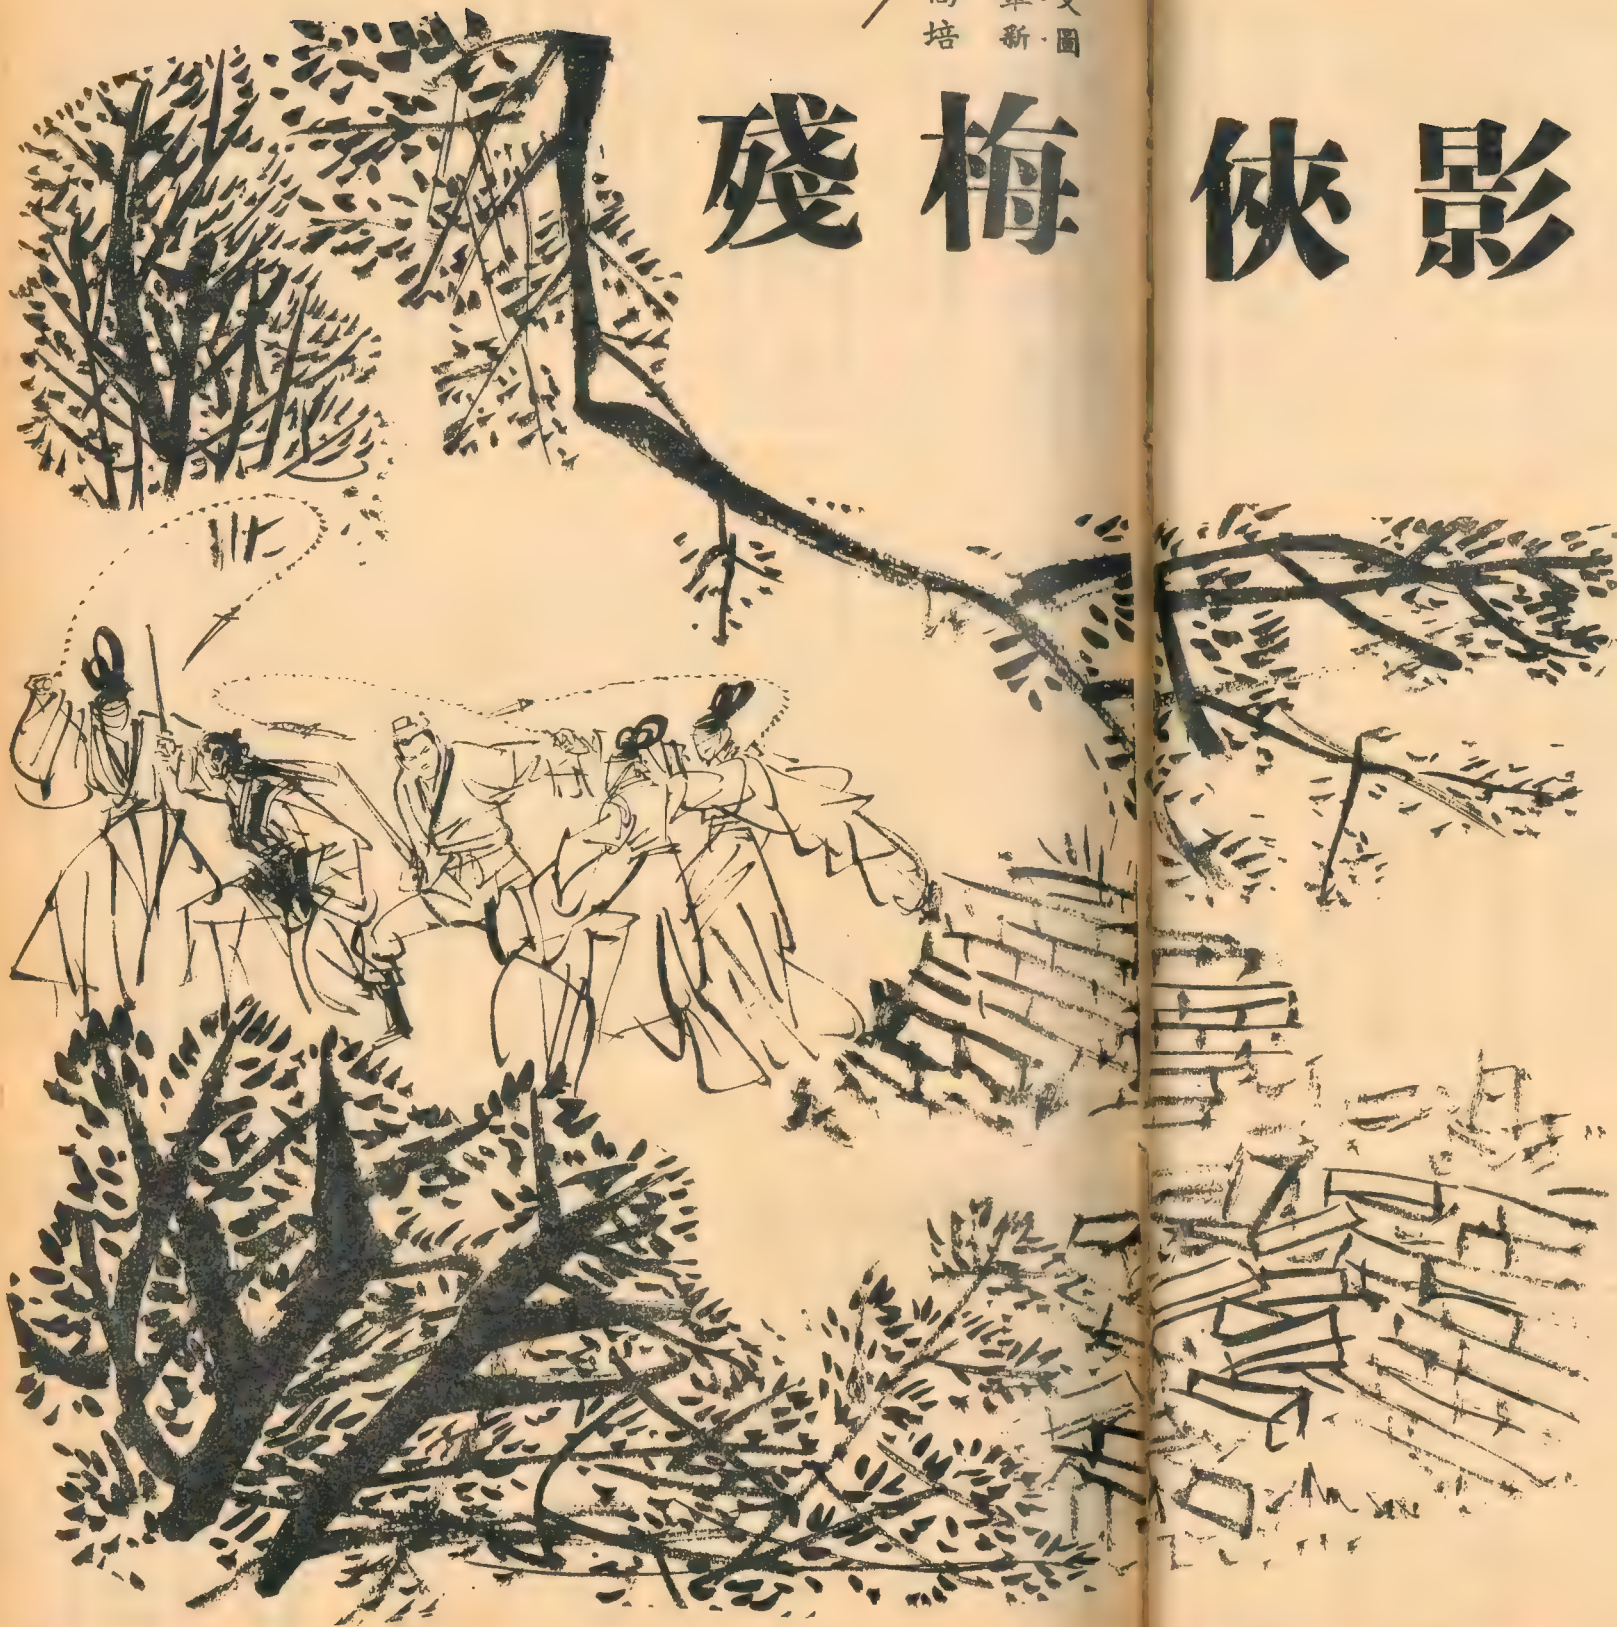 培新·圖
殘梅俠影